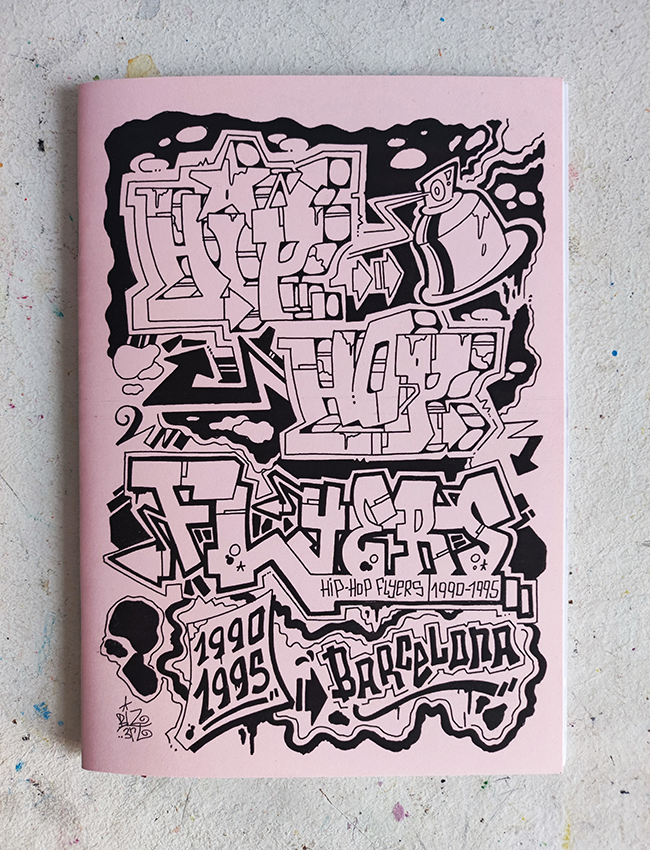 HIP
HOP
FLYERS
HIP-HOP FLYERS 1990-1995
1990
1995
BARCELONA